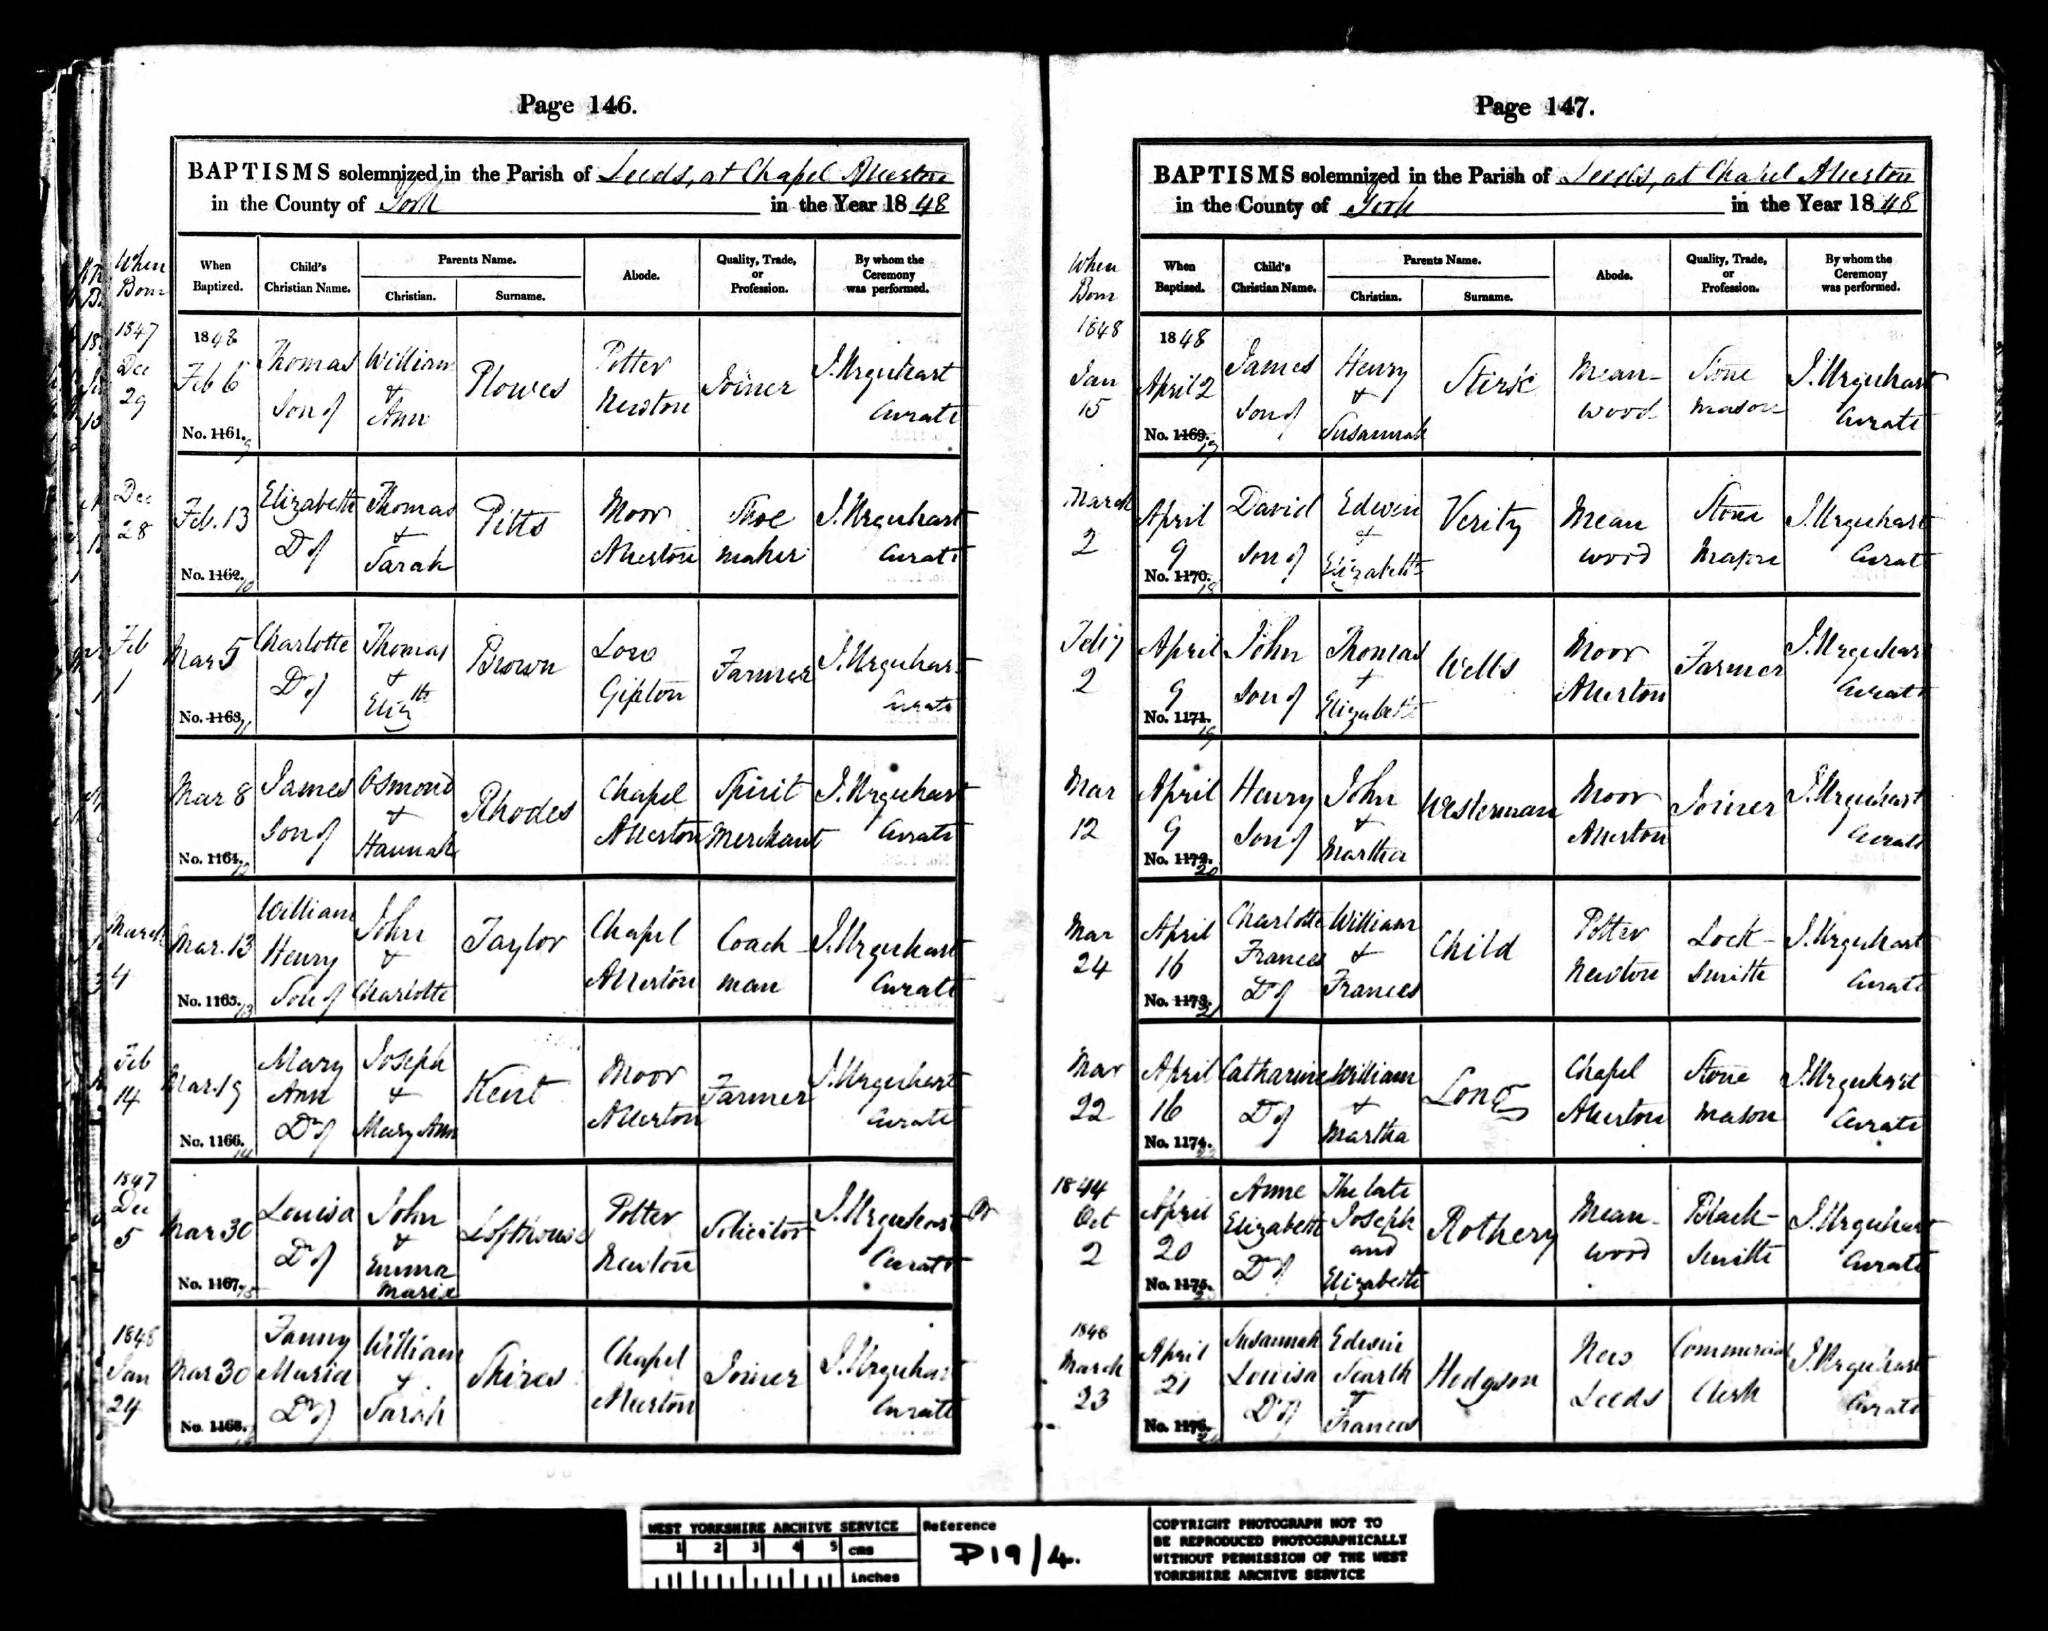 Page 146.
BAPTISMS solemnized in the Parish of Leeds, at Chapel Allerton
in the County of York in the Year 1848
When Born
When Baptized.
Child's Christian Name.
Parents Name.
Christian.
Surname.
Abode.
Quality, Trade, or Profession.
By whom the Ceremony was performed.
1847 Dec 29
1848 Feb 6
No. 1161.
Thomas Son of
William & Ann
Plowes
Potter Newton
Joiner
J. Urquhart Curate
Dec 28
Feb. 13
No. 1162.
Elizabeth Dr of
Thomas & Sarah
Pitts
Moor Allerton
Shoe maker
J. Urquhart Curate
Feb 1
Mar 5
No. 1163.
Charlotte Dr of
Thomas & Elizth
Brown
Low Gipton
Farmer
J. Urquhart Curate
Mar 8
No. 1164.
James Son of
Osmond & Hannah
Rhodes
Chapel Allerton
Spirit Merchant
J. Urquhart Curate
March 4
Mar. 13
No. 1165.
William Henry Son of
John & Charlotte
Taylor
Chapel Allerton
Coach man
J. Urquhart Curate
Feb 14
Mar. 19
No. 1166.
Mary Ann Dr of
Joseph & Mary Ann
Kent
Moor Allerton
Farmer
J. Urquhart Curate
1847 Dec 5
Mar 30
No. 1167.
Louisa Dr of
John & Emma Maria
Lofthouse
Potter Newton
Solicitor
J. Urquhart Curate
1848 Jan 24
Mar 30
No. 1168.
Fanny Maria Dr of
William & Sarah
Shires
Chapel Allerton
Joiner
J. Urquhart Curate
Page 147.
BAPTISMS solemnized in the Parish of Leeds, at Chapel Allerton
in the County of York in the Year 1848
When Born
When Baptized.
Child's Christian Name.
Parents Name.
Christian.
Surname.
Abode.
Quality, Trade, or Profession.
By whom the Ceremony was performed.
1848 Jan 15
1848 April 2
No. 1169.
James Son of
Henry & Susannah
Stirk
Mean-wood
Stone Mason
J. Urquhart Curate
March 2
April 9
No. 1170.
David Son of
Edwin & Elizabeth
Verity
Mean wood
Stone Mason
J. Urquhart Curate
Feb 2
April 9
No. 1171.
John Son of
Thomas & Elizabeth
Wells
Moor Allerton
Farmer
J. Urquhart Curate
Mar 12
April 9
No. 1172.
20
Henry Son of
John & Martha
Westerman
Moor Allerton
Joiner
J. Urquhart Curate
Mar 24
April 16
No. 1173.
Charlotte Frances Dr of
William & Frances
Child
Potter Newton
Lock-smith
J. Urquhart Curate
Mar 22
April 16
No. 1174.
Catharine Dr of
William & Martha
Long
Chapel Allerton
Stone Mason
J. Urquhart Curate
1844 Oct 2
April 20
No. 1175.
Anne Elizabeth Dr of
The late Joseph and Elizabeth
Rothery
Mean-wood
Black-smith
J. Urquhart Curate
1848 March 23
April 21
No. 1176.
Susannah Louisa Dr of
Edwin Scarth & Frances
Hodgson
New Leeds
Commercial Clerk
J. Urquhart Curate
WEST YORKSHIRE ARCHIVE SERVICE
1 2 3 4 5 cms
inches
Reference
D19/4.
COPYRIGHT PHOTOGRAPH NOT TO
BE REPRODUCED PHOTOGRAPHICALLY
WITHOUT PERMISSION OF THE WEST
YORKSHIRE ARCHIVE SERVICE